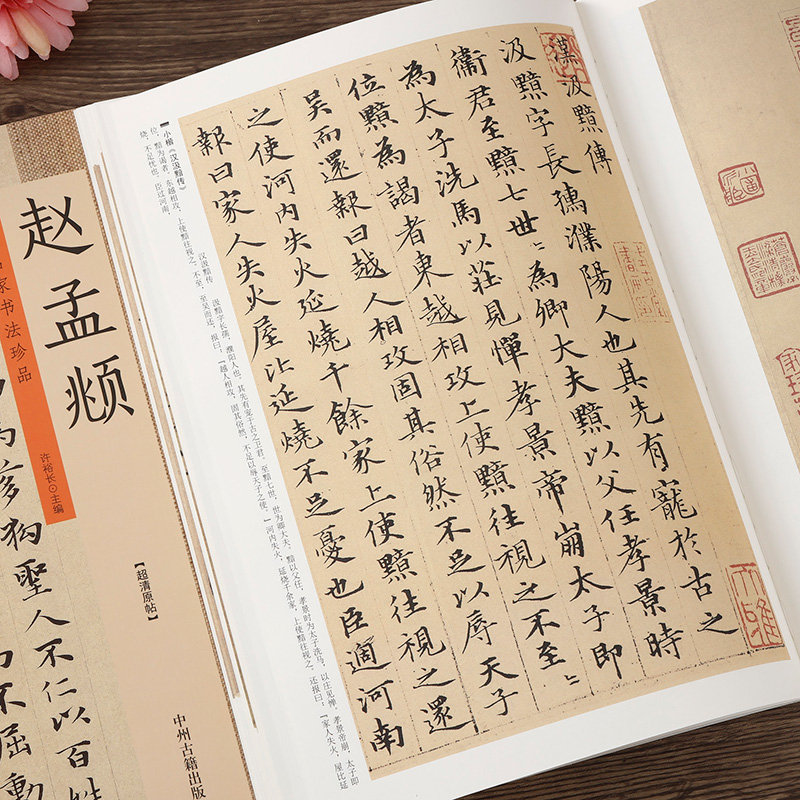 漢汲黯傳
汲黯字長孺濮陽人也其先有寵於古之
衛君至黯七世〻為卿大夫黯以父任孝景時
為太子洗馬以莊見憚孝景帝崩太子即
位黯為謁者東越相攻上使黯往視之不至〻
吳而還報曰越人相攻固其俗然不足以辱天子
之使河内失火延燒千餘家上使黯往視之還
報曰家人失火屋比延燒不足憂也臣過河南
小楷《汉汲黯传》
汉汲黯传 汲黯字长孺，濮阳人也。其先有宠于古之卫君。至黯七世，世为卿大夫。黯以父任，孝景时为太子洗马，以庄见惮。孝景帝崩，太子即
位，黯为谒者。东越相攻，上使黯往视之。不至，至吴而还，报曰：「越人相攻，固其俗然，不足以辱天子之使。」河内失火，延烧千余家，上使黯往视之。还报曰：「家人失火，屋比延
烧，不足忧也。臣过河南，
赵孟頫
家书法珍品
许裕长⊙主编
【超清原帖】
中州古籍出版
芻狗聖人不仁以百姓
不屈動